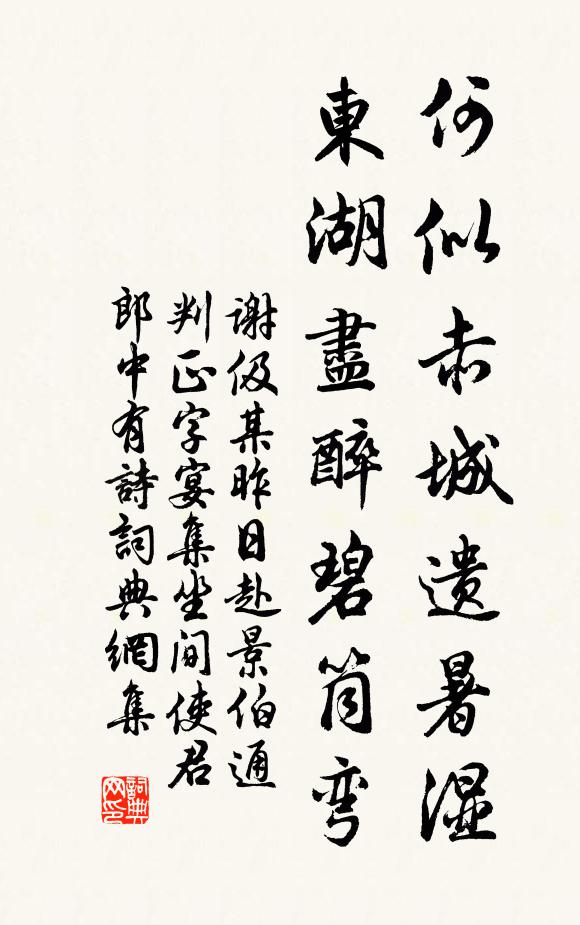 何似赤城遗暑湿
東湖盡醉碧筒弯
谢伋某昨日赴景伯通
判正字宴集坐间使君
郎中有詩詞典網集
詞典网印